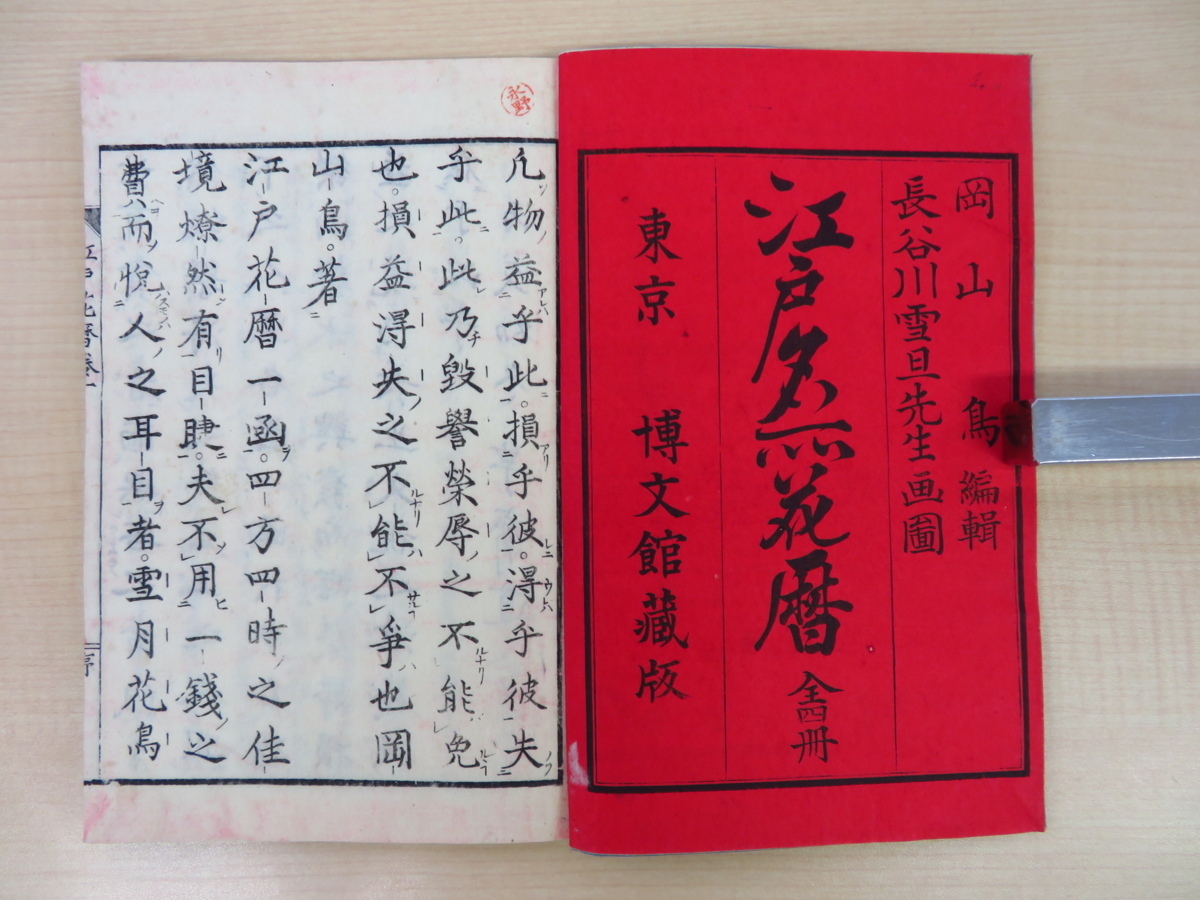 岡山鳥編輯
長谷川雪旦先生画圖
江戸名所花暦 全四冊
東京 博文館藏版
永野
凢物益乎此。損乎彼。淂乎彼失
乎此。此乃毀譽榮辱之不能免
也。損益淂失之不能不爭也岡
山鳥。著
江戸花暦一函。四方四時之佳
境燎然有目睫。夫不用一錢之
費而悅人之耳目者。雪月花鳥
江戸花暦巻一
序